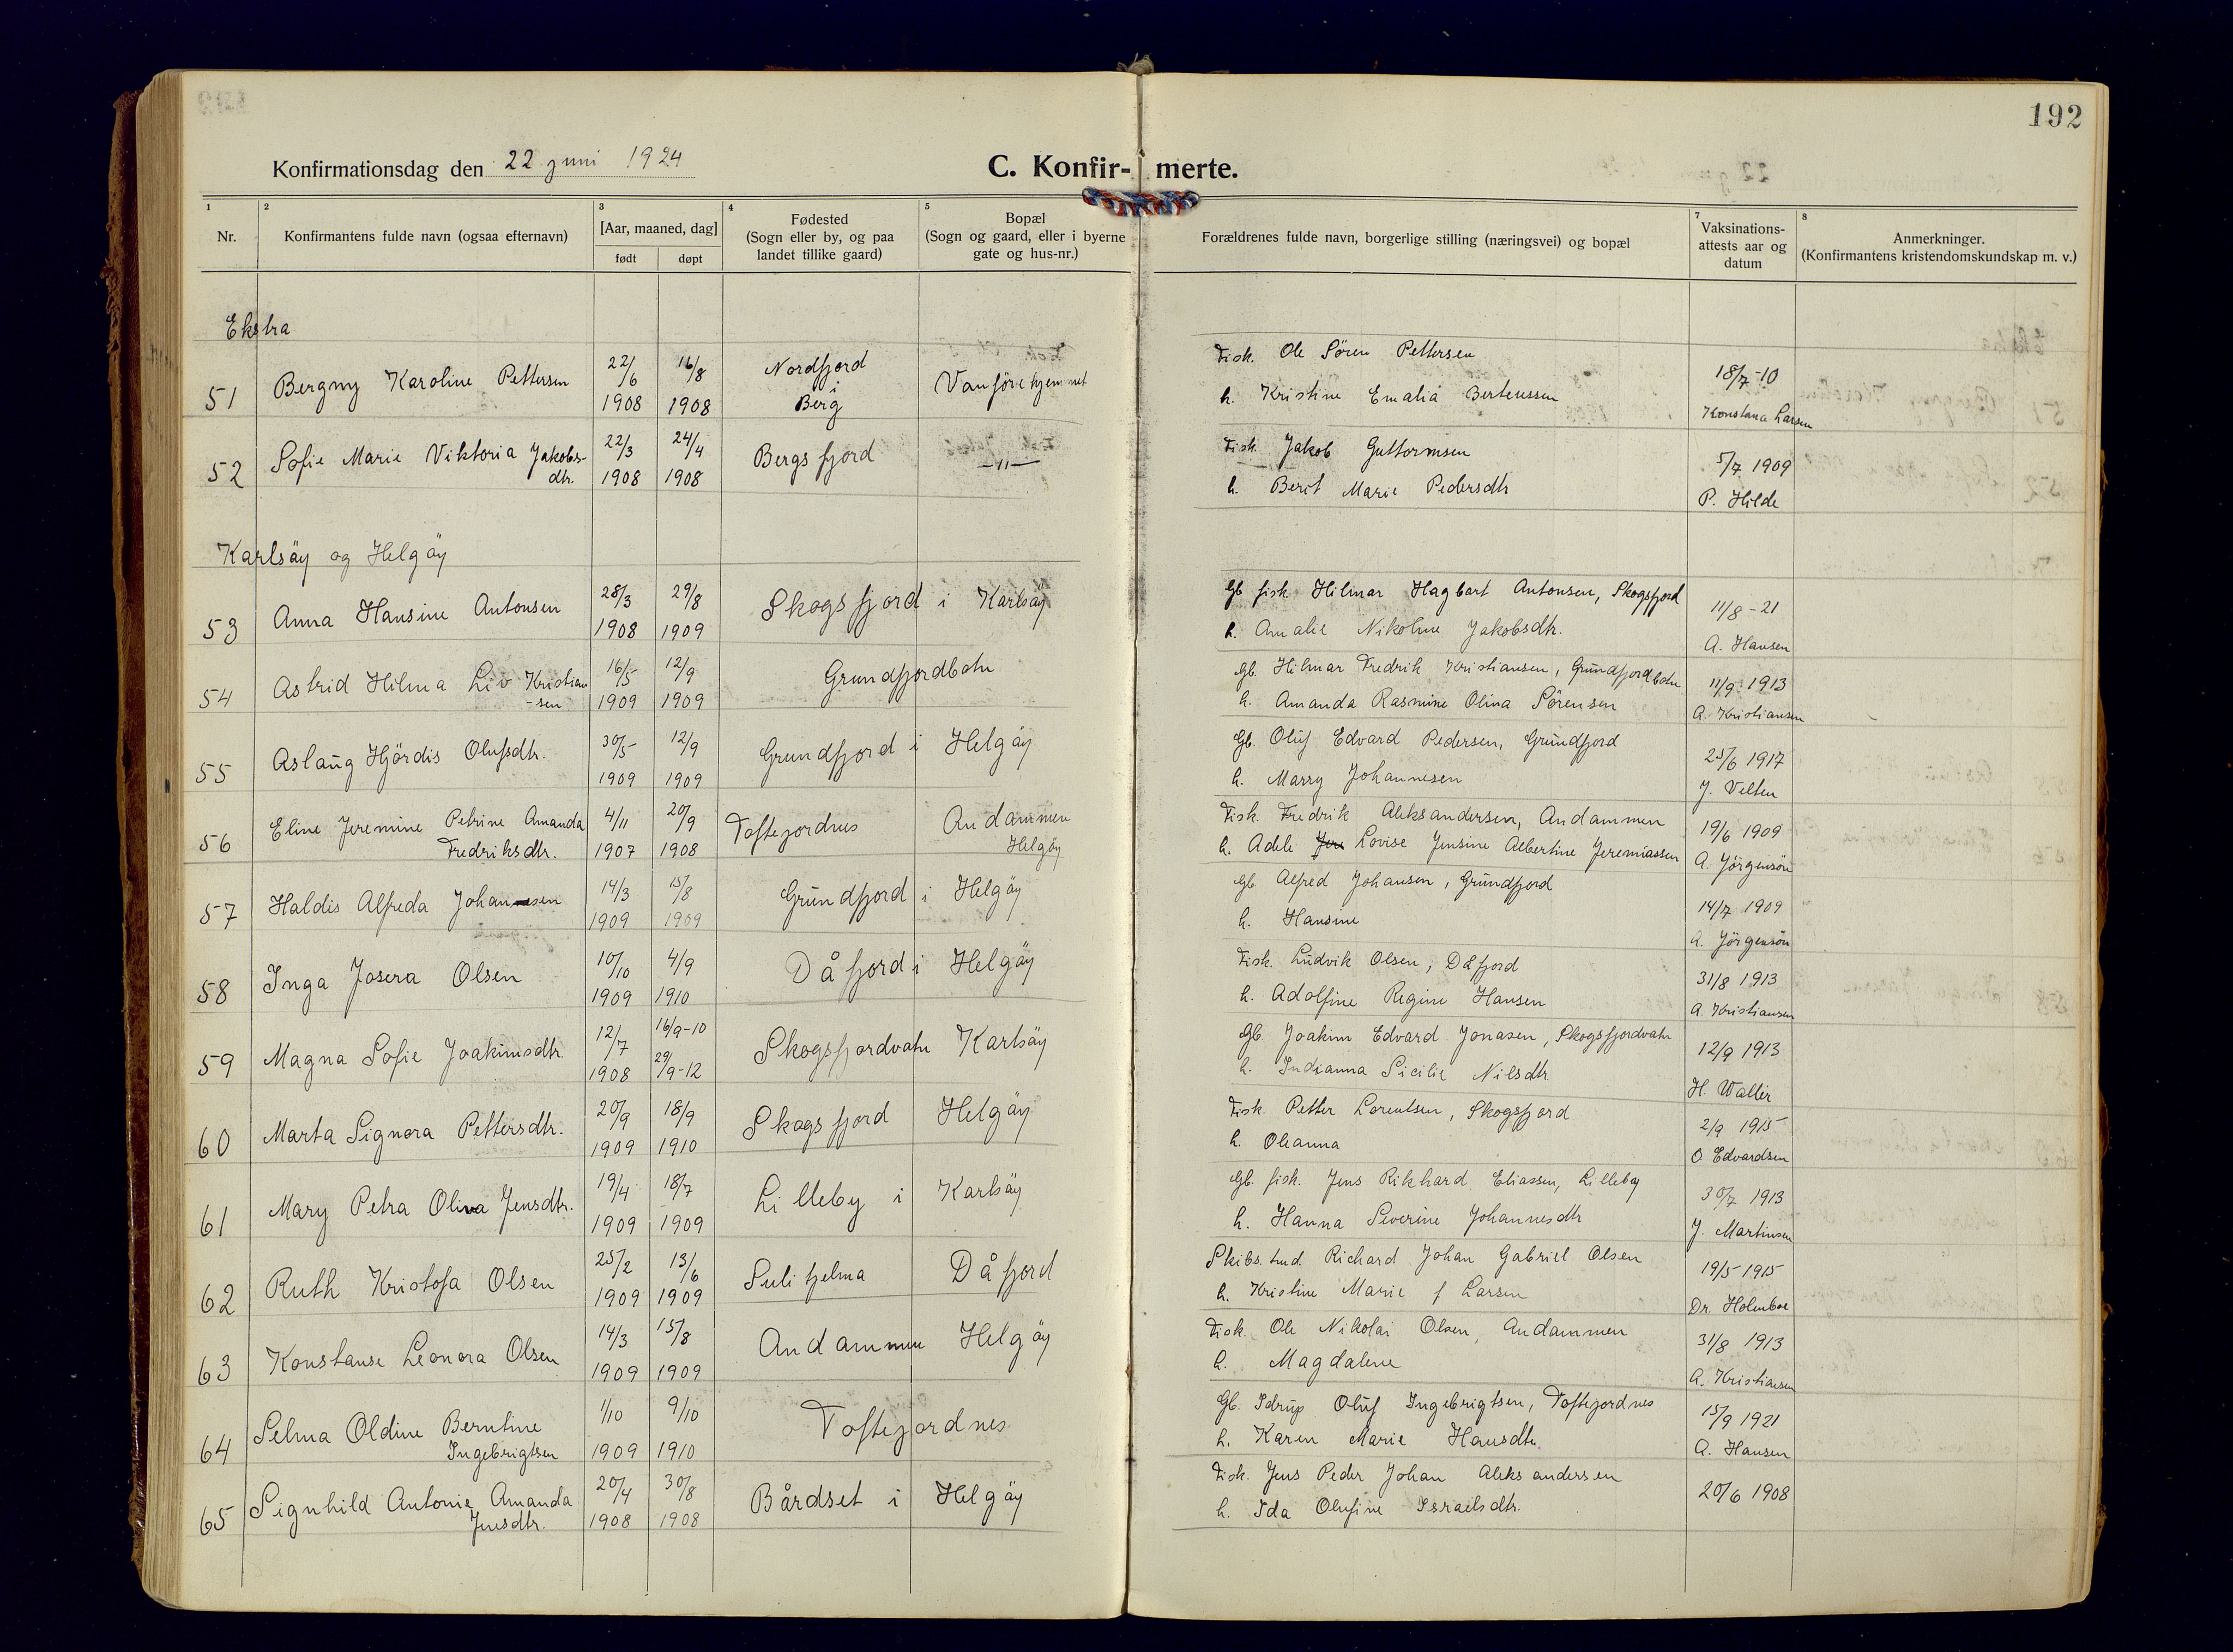 192
Konfirmationsdag den 22 juni 1924
C. Konfir- merte.
1 2 3 4 5 7 8
Nr.
Konfirmantens fulde navn (ogsaa efternavn)
[Aar, maaned, dag]
født døpt
Fødested
(Sogn eller by, og paa
landet tillike gaard)
Bopæl
(Sogn og gaard, eller i byerne
gate og hus-nr.)
Forældrenes fulde navn, borgerlige stilling (næringsvei) og bopæl
Vaksinations-
attests aar og
datum
Anmerkninger.
(Konfirmantens kristendomskundskap m. v.)
Ekstra
51 Bergny Karoline Pettersen 22/6 1908 16/8 1908 Nordfjord i Berg Vanförehjemmet
Fisk. Ole Sören Pettersen 18/7-10
h. Kristine Emalia Berteussen Konstance Larsen
52 Sofie Marie Viktoria Jakobs-
dtr. 22/3 1908 24/4 1908 Bergsfjord -"-
Fisk. Jakob Guttormsen 5/7 1909
h. Berit Marie Pedersdtr P. Hilde
Karlsöy og Helgöy
53 Anna Hansine Antonsen 28/3 1908 29/8 1909 Skogsfjord i Karlsöy
Gb fisk Hilmar Hagbart Antonsen, Skogsfjord 11/8-21
h. Amalie Nikoline Jakobsdtr. A. Hansen
54 Astrid Hilma Liv Kristian
-sen 16/5 1909 12/9 1909 Grundfjordbotn
Gb. Hilmar Fredrik Kristiansen, Grundfjordbotn 11/9 1913
h. Amanda Rasmine Olina Sörensen A. Kristiansen
55 Aslaug Hjördis Olufsdtr. 30/5 1909 12/9 1909 Grundfjord i Helgöy
Gb. Oluf Edvard Pedersen, Grundfjord 25/6 1917
h. Marry Johannesen J. Velten
56 Eline Jeremine Petrine Amanda
Fredriksdtr. 4/11 1907 20/9 1908 Toftejordnes Andammen
Helgöy
Fisk. Fredrik Aleksandersen, Andammen 19/6 1909
h. Adele Jere Lovise Jensine Albertine Jeremiassen A. Jörgensön
57 Haldis Alfreda Johansen 14/3 1909 15/8 1909 Grundfjord i Helgöy
Gb. Alfred Johansen, Grundfjord 14/7 1909
h. Hansine A. Jörgensön
58 Inga Josera Olsen 10/10 1909 4/9 1910 Dåfjord i Helgöy
Fisk. Ludvik Olsen, Dåfjord 31/8 1913
h. Adolfine Regine Hansen A. Kristiansen
59 Magna Sofie Joakimsdtr. 12/7 1908 16/9-10 29/9-12 Skogsfjordvatn Karlsöy
Gb. Joakim Edvard Jonasen, Skogsfjordvatn 12/9 1913
h. Indianna Sicilie Nilsdtr. H. Waller
60 Marta Signora Pettersdtr. 20/9 1909 18/9 1910 Skogsfjord Helgöy
Fisk. Petter Lorentsen, Skogsfjord 2/9 1915
h. Oleanna O Edvardsen
61 Mary Petra Oliva Jensdtr. 19/4 1909 18/7 1909 Lilleby i Karlsöy
Gb. fisk. Jens Rikhard Eliassen, Lilleby 30/7 1913
h. Hanna Severine Johannesdtr J. Martinsen
62 Ruth Kristofa Olsen 25/2 1909 13/6 1909 Sulitjelma Dåfjord
Skibs. tmd. Richard Johan Gabriel Olsen 19/5 1915
h. Kristine Marie f Larsen Dr. Holmboe
63 Konstanse Leonora Olsen 14/3 1909 15/8 1909 Andammen Helgöy
Fisk. Ole Nikolai Olsen, Andammen 31/8 1913
h. Magdalene A. Kristiansen
64 Selma Oldine Berntine
Ingebrigtsen 1/10 1909 9/10 1910 Toftejordnes
Gb. Idrup Oluf Ingebrigtsen, Toftejordnes 15/9 1921
h. Karen Marie Hansdtr. A. Hansen
65 Signhild Antonie Amanda
Jensdtr. 20/4 1908 30/8 1908 Bårdset i Helgöy
Fisk. Jens Peder Johan Aleksanderssen 20/6 1908
h. Ida Olufine Israelsdtr.